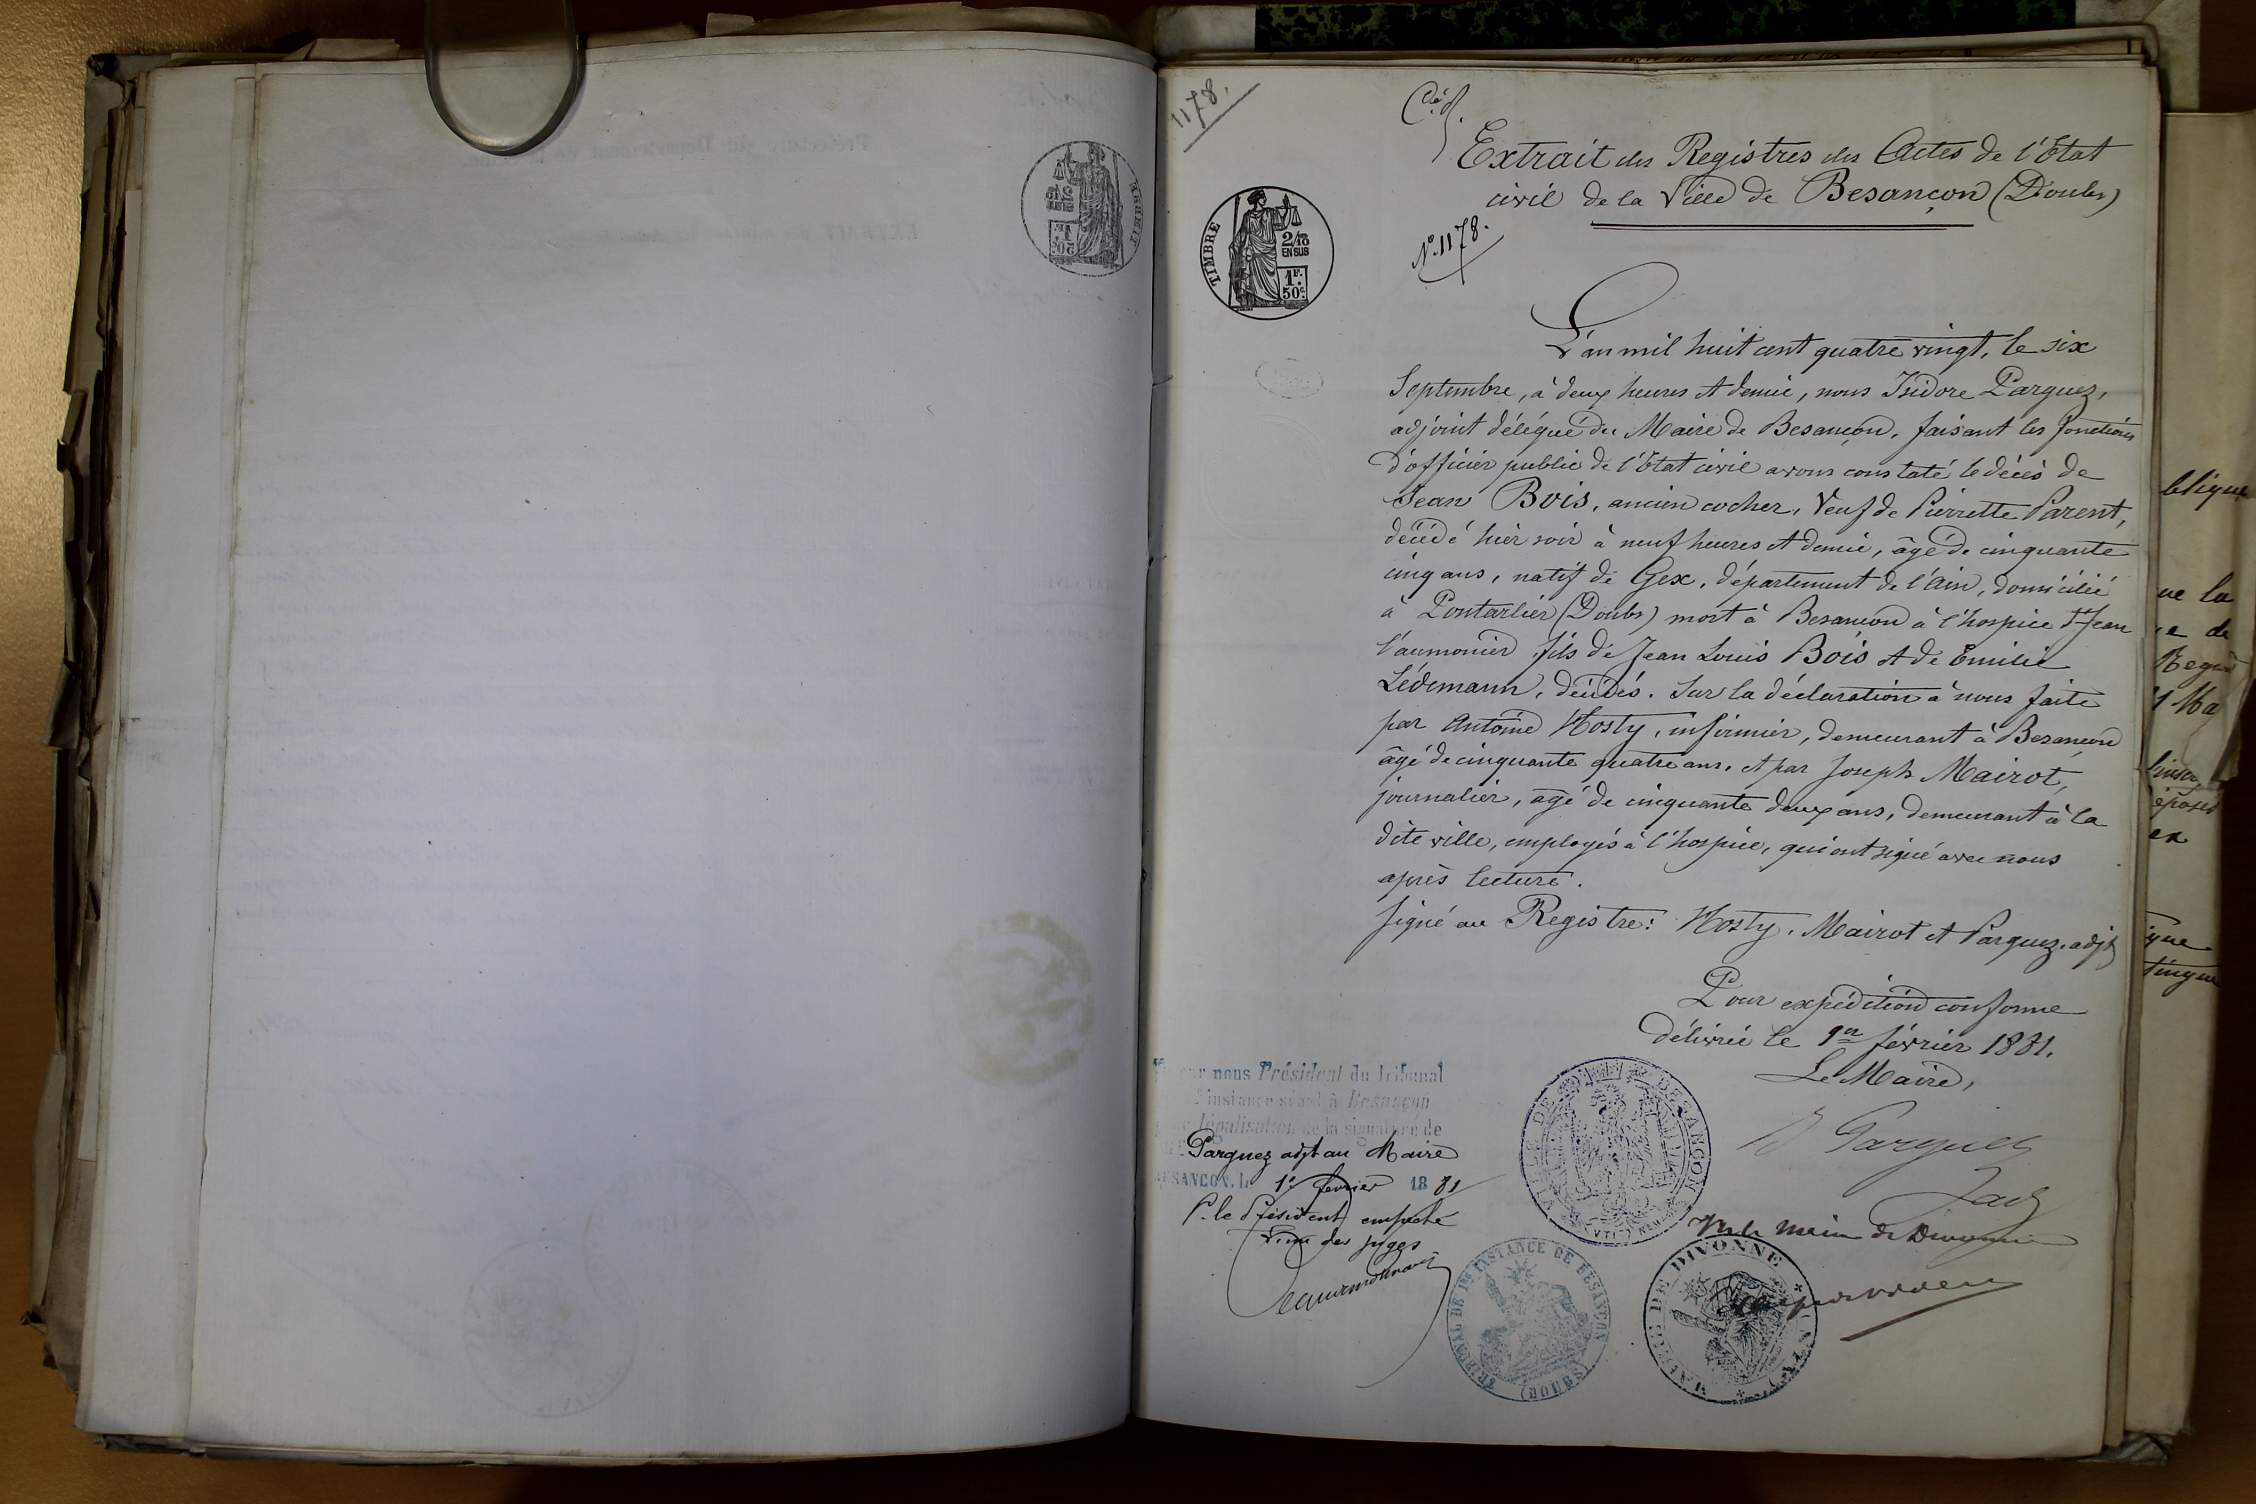 1178.
Extrait des Registres des Actes de l'Etat
civil de la Ville de Besançon (Doubs)
N° 1178.
TIMBRE
2/10
EN SUS
1F.
50c.
L'an mil huit cent quatre vingt, le six
Septembre, à deux heures et demie, nous Isidore Parguez,
adjoint délégué du Maire de Besançon, faisant les fonctions
d'officier public de l'Etat civil avons constaté le décès de
Jean Bois, ancien cocher, Veuf de Pierrette Parent,
décédé hier soir à neuf heures et demie, âgé de cinquante
cinq ans, natif de Gex, département de l'Ain, domicilié
à Pontarlier (Doubs) mort à Besançon à l'hospice St Jean
l'aumonier, fils de Jean Louis Bois et de Emilie
Lédemann, décédés. Sur la déclaration à nous faite
par Antoine Hosty, infirmier, demeurant à Besançon
âgé de cinquante quatre ans, et par Joseph Mairot,
journalier, âgé de cinquante deux ans, demeurant à la
dite ville, employés à l'hospice, qui ont signé avec nous
après lecture.
Signé au Registre: Hosty, Mairot et Parguez, adjt
Pour expédition conforme
délivrée le 1er février 1881.
Le Maire,
Parguez
nous Président du tribunal
instance séant à Besançon
légalisation de la signature de
Parguez adjt au Maire
BESANÇON, le 1er février 1881
P. le Président empêché
l'un des juges
VILLE DE BESANÇON
Vu le maire de Divonne
TRIBUNAL DE 1re INSTANCE DE BESANÇON
(DOUBS)
MAIRIE DE DIVONNE
(AIN)
blique
ue la
de
ex